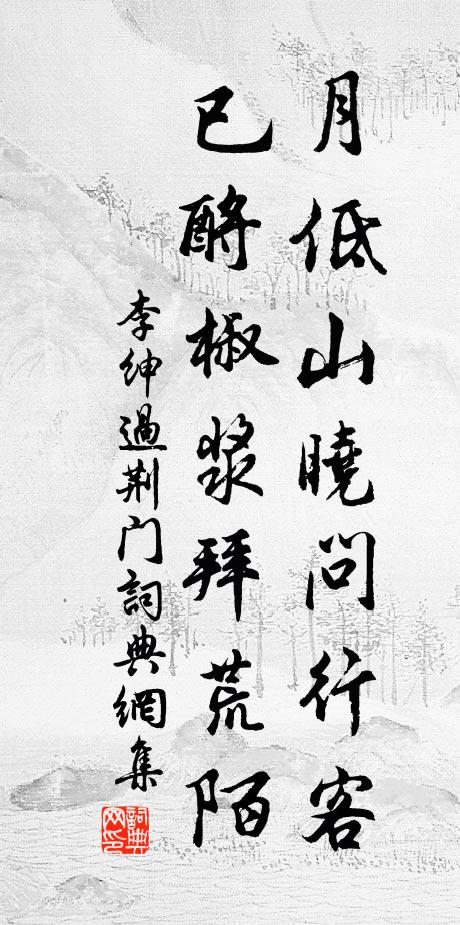 月低山曉問行客
已酹椒漿拜荒陌
李紳過荆门詞典網集
詞典
网印